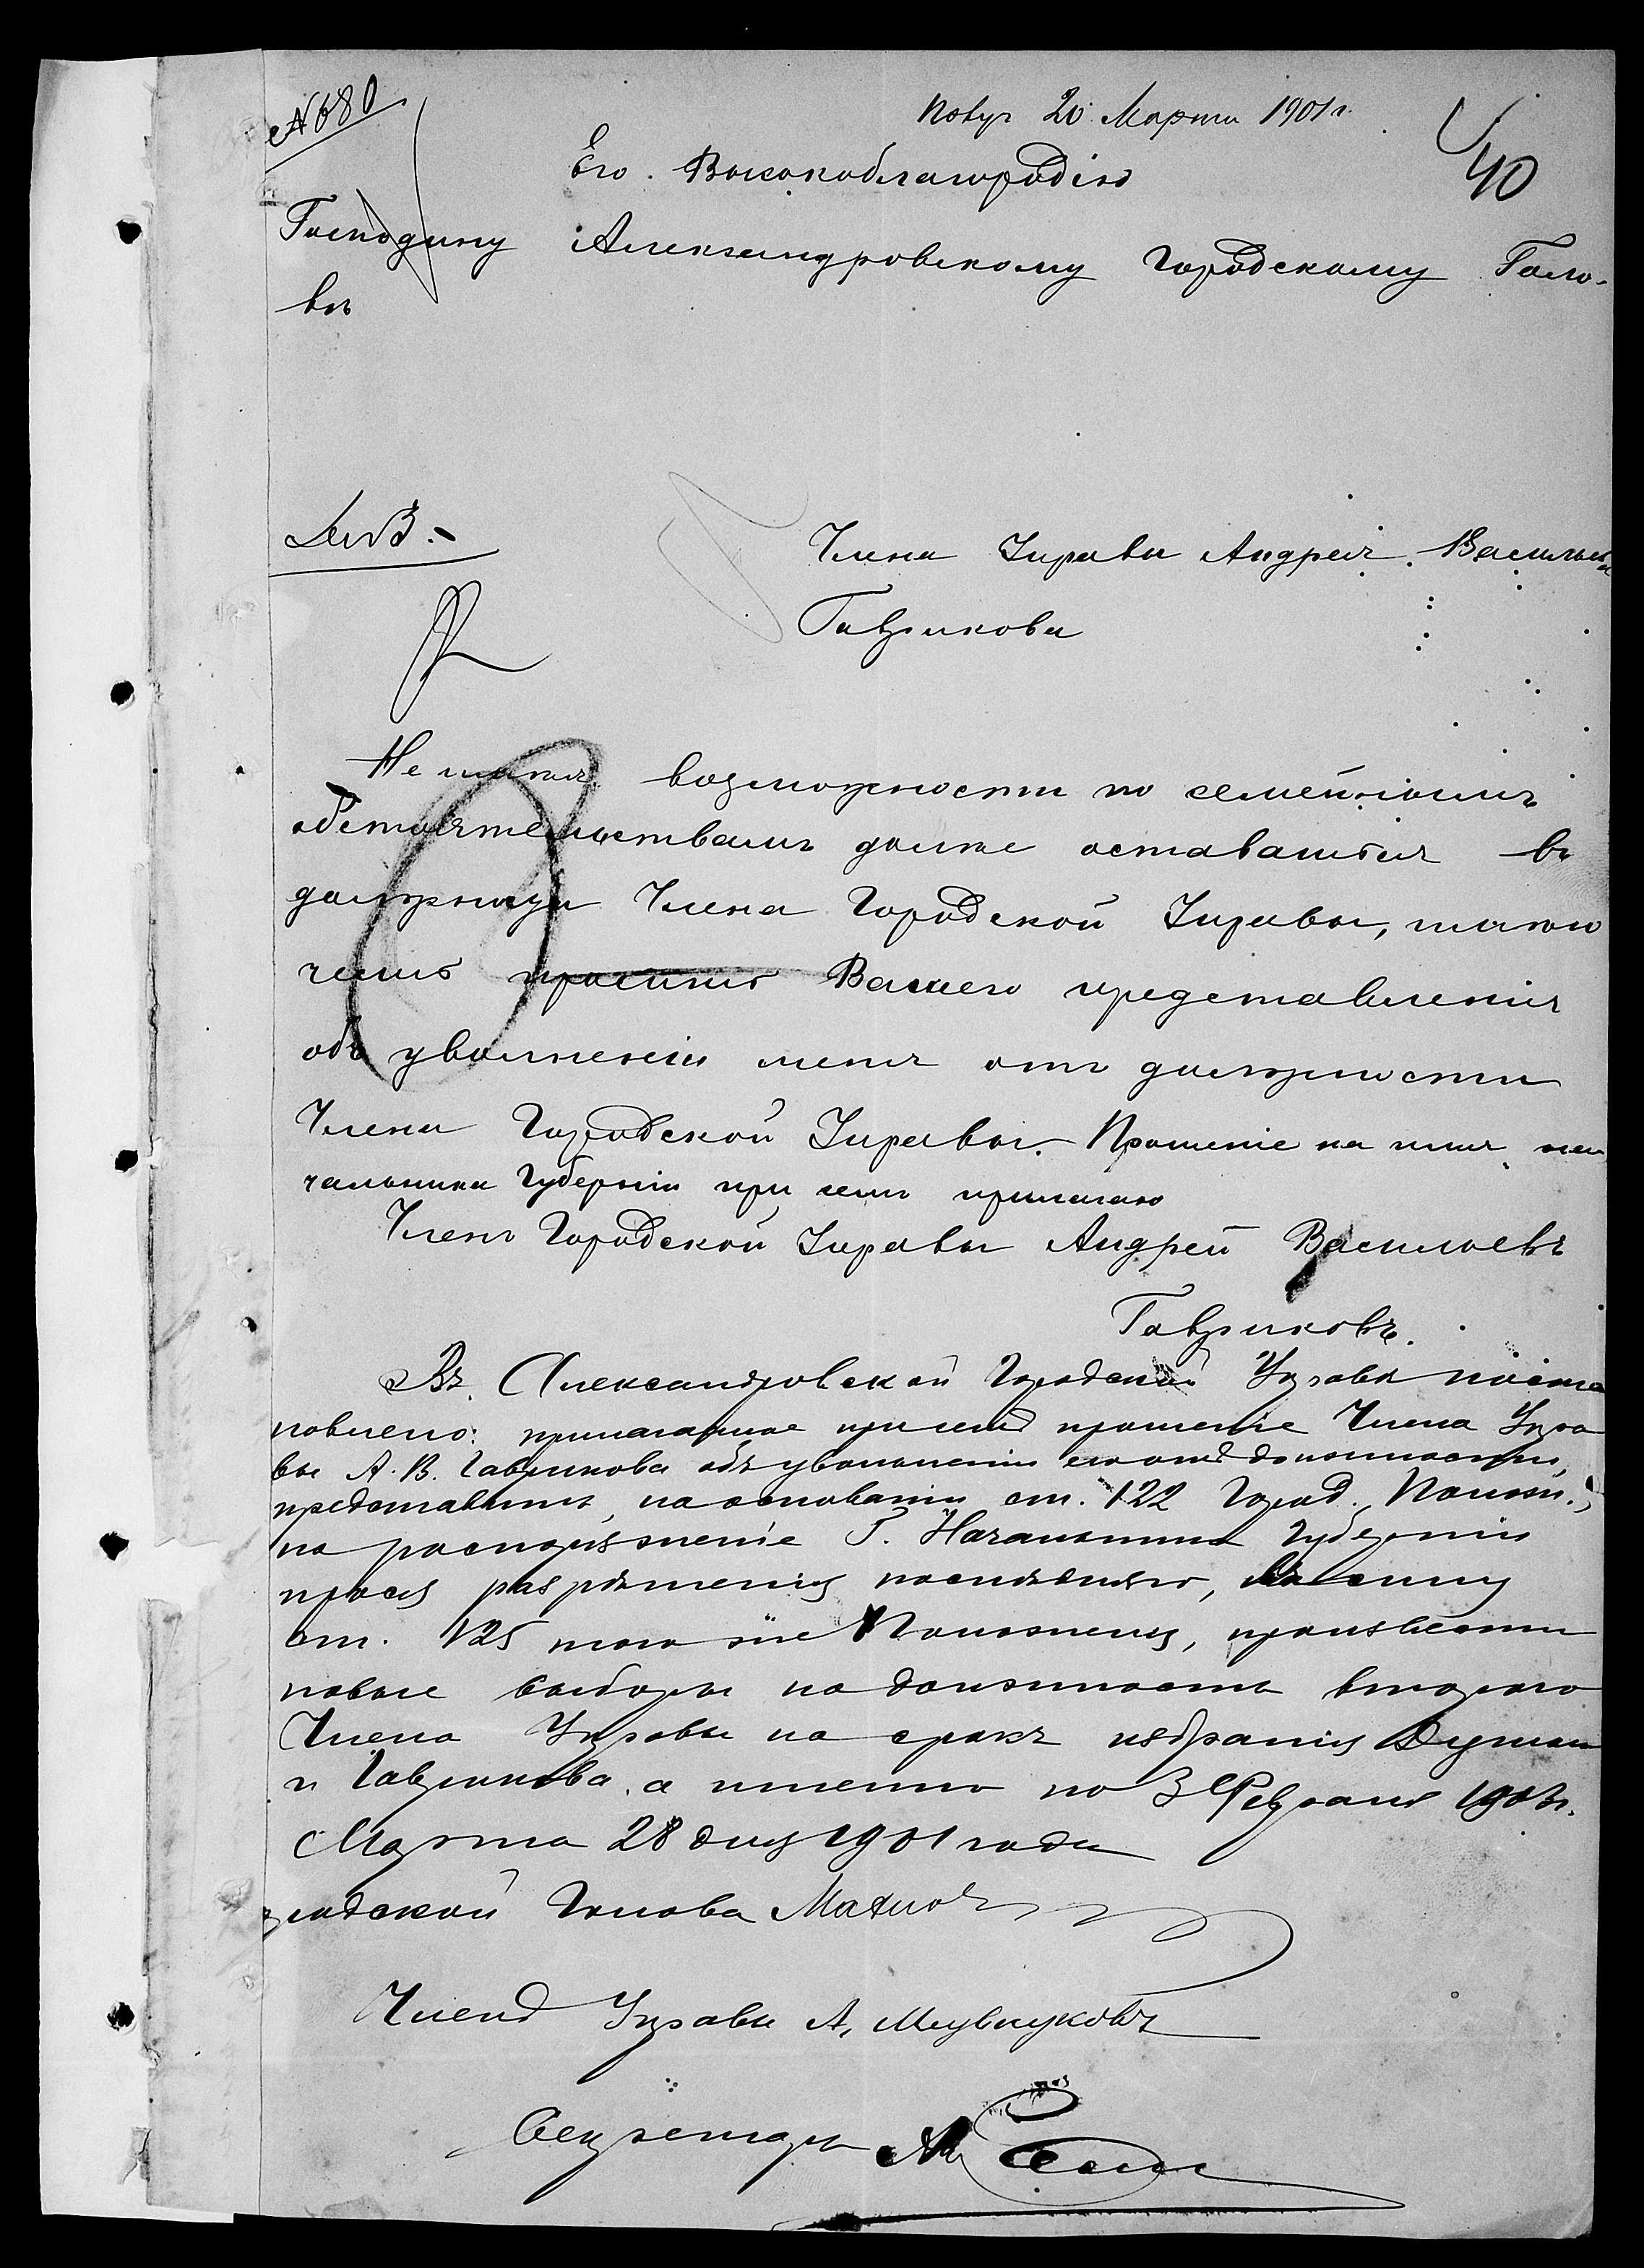 № 680
Получ 20 Марта 1901 г.
40
Его Высокоблагородію
Господину Александровскому Городскому Голо-
вѣ
Члена Управы Андрея Васильева
Гаврикова
Не имѣя возможности по семейнымъ
обстоятельствамъ далѣе оставаться въ
должности Члена Городской Управы,
честь просить Вашего представленія
объ увольненіи меня отъ должности
Члена Городской Управы. Прошеніе на имя На
чальника Губерніи при семъ прилагаю
Членъ Городской Управы Андрей Васильевъ
Гавриковъ.
Въ Александровской Городской Управѣ поста
новлено: прилагаемое при семъ прошеніе Члена Упра
вы А. В. Гаврикова объ увольненіи его отъ должности,
представить, на основаніи ст. 122 Город. Полож.,
на распоряженіе Г. Начальника Губерніи
прося разрѣшенія послѣдняго, въ силу
ст. 125 того же Положенія, произвести
новые выборы на должность второго
Члена Управы на срокъ избранія Думою
г. Гаврикова, а именно по 3 Февраля 1903 г.
Марта 28 дня 1901 года
родской Голова
Членъ Управы А.
Секретарь